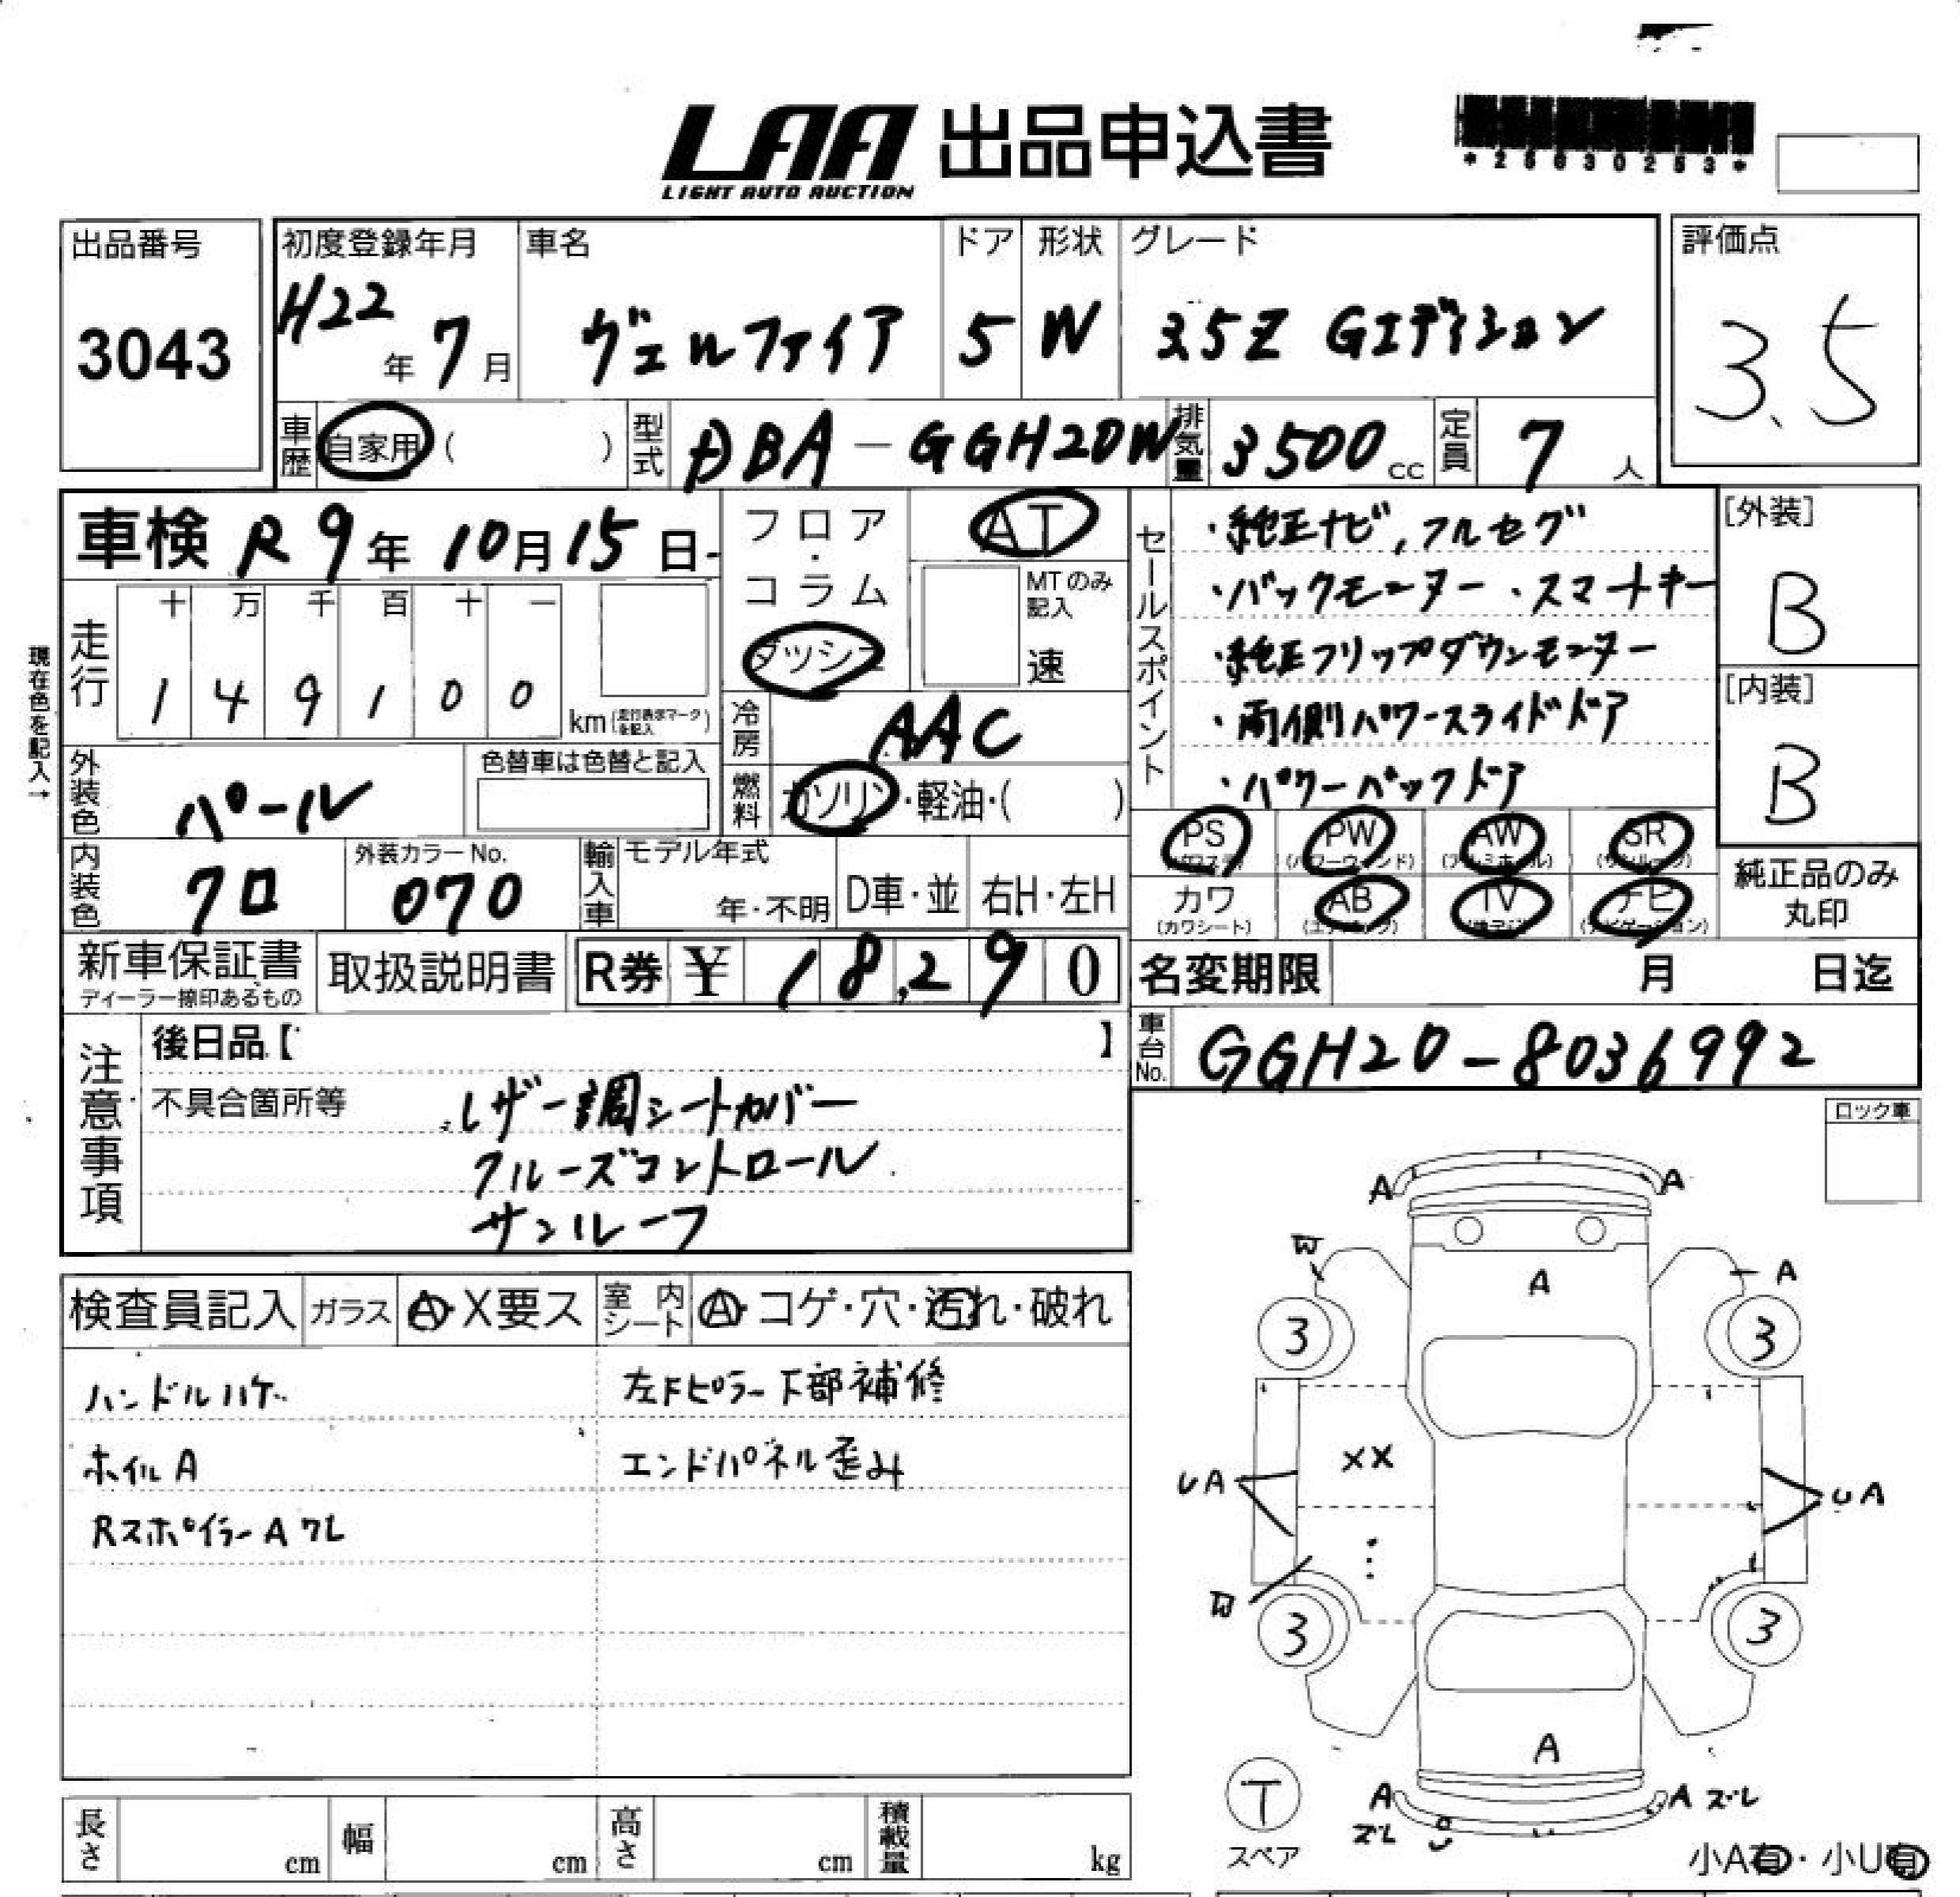 LAA 出品申込書
LIGHT AUTO AUCTION
*25030253*
出品番号
3043
初度登録年月
H22年 7月
車名
ヴェルファイア
ドア
5
形状
W
グレード
3.5Z Gエディション
評価点
3.5
車歴
自家用 ( )
型式
DBA-GGH20W
排気量
3500 cc
定員
7 人
車検 R9年 10月 15日
走行
十 万 千 百 十 一
1 4 9 1 0 0
km (走行表示マークを記入)
現在色を記入→
外装色
パール
色替車は色替と記入
内装色
クロ
外装カラーNo.
070
フロア・コラム
ダッシュ
AT
MTのみ記入
速
冷房
AAC
燃料
ガソリン・軽油・( )
輸入車
モデル年式
年・不明
D車・並
右H・左H
セールスポイント
・純正ナビ,フルセグ
・バックモニター ・スマートキー
・純正フリップダウンモニター
・両側パワースライドドア
・パワーバックドア
[外装]
B
[内装]
B
PS PW AW SR
(パワステ) (パワーウィンド) (アルミホイル) (サンルーフ)
カワ AB TV ナビ
(カワシート) (エアバッグ) (ナビゲーション)
純正品のみ
丸印
新車保証書
ディーラー捺印あるもの
取扱説明書
R券 ¥ 18,290
名変期限 月 日迄
車台No.
GGH20-8036992
注意事項
後日品【 】
不具合箇所等
レザー調シートカバー
クルーズコントロール
サンルーフ
ロック車
検査員記入
ガラス
A・X要ス
室内シート
A・コゲ・穴・汚れ・破れ
ハンドルハゲ
左Fピラー下部補修
ホイルA
エンドパネル歪み
RスポイラーAワレ
A A
W A A
3 3
XX
UA UA
W
3 3
A
T
スペア
A A ズレ
ズレ U
小A有・小U有
長さ cm
幅 cm
高さ cm
積載量 kg